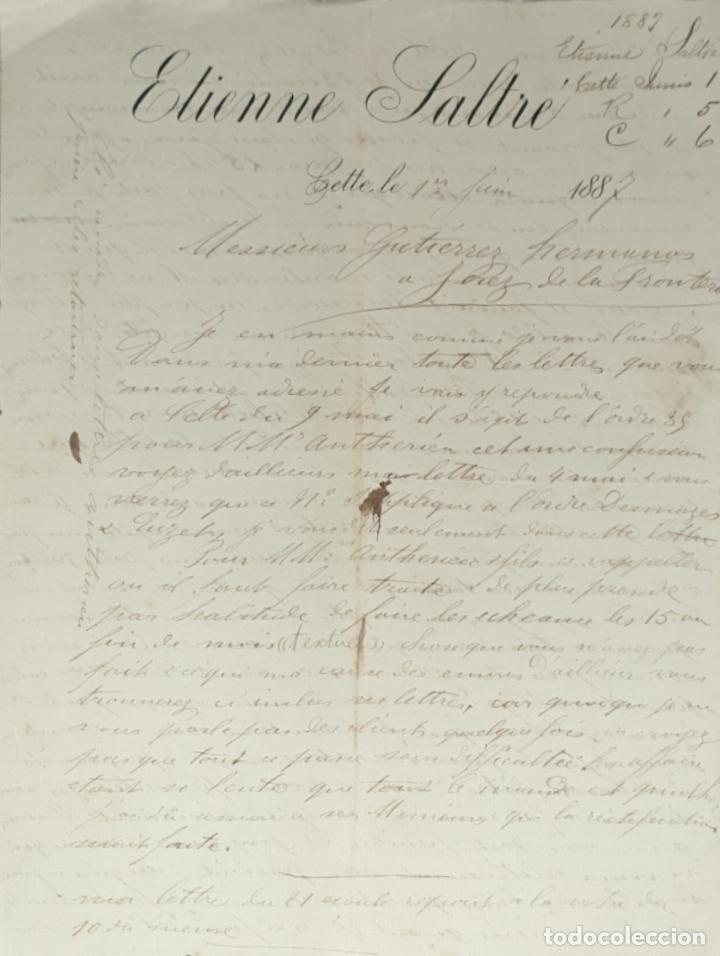 1887
Etienne Saltré
Cette Junio 1
R " 5
C " 6
Etienne Saltré
Cette, le 1er Juin 1887
Messieurs Gutiérrez hermanos
a Jerez de la Frontera
Je en mains comme je vous l'ai dit
Dans ma dernier toute les lettre que vous
m'avez adressé Je vais y repondre
a celle du 9 mai il s'agit de l'ordre 35
pour M Mrs Antherieu c'est une confusion
voyez d'ailleurs ma lettre du 4 mai & vous
verrez que ce No s'applique a l'ordre Desmazes
& Euzet, je vous seulement dans cette lettre
Pour M Mrs Antherieu & fils
ou il faut faire traite & de plus prendre
pas habitude de faire les echeance les 15 ou
fin de mois ((textuel)) chose que vous n'avez pas
fait & ce qui m'a cause des ennuis d'ailleurs vous
trouverez ci inclus ses lettres, car quoique je ne
vous parle pas des clients quelque fois ne croyez
pas que tout ce passe sans difficultée les affaire
etant se lente que tout le monde est
a ses Messieurs que la rectification
serait faite.
ma lettre du 21 repond a la votre du
10 du meme
todocoleccion.net